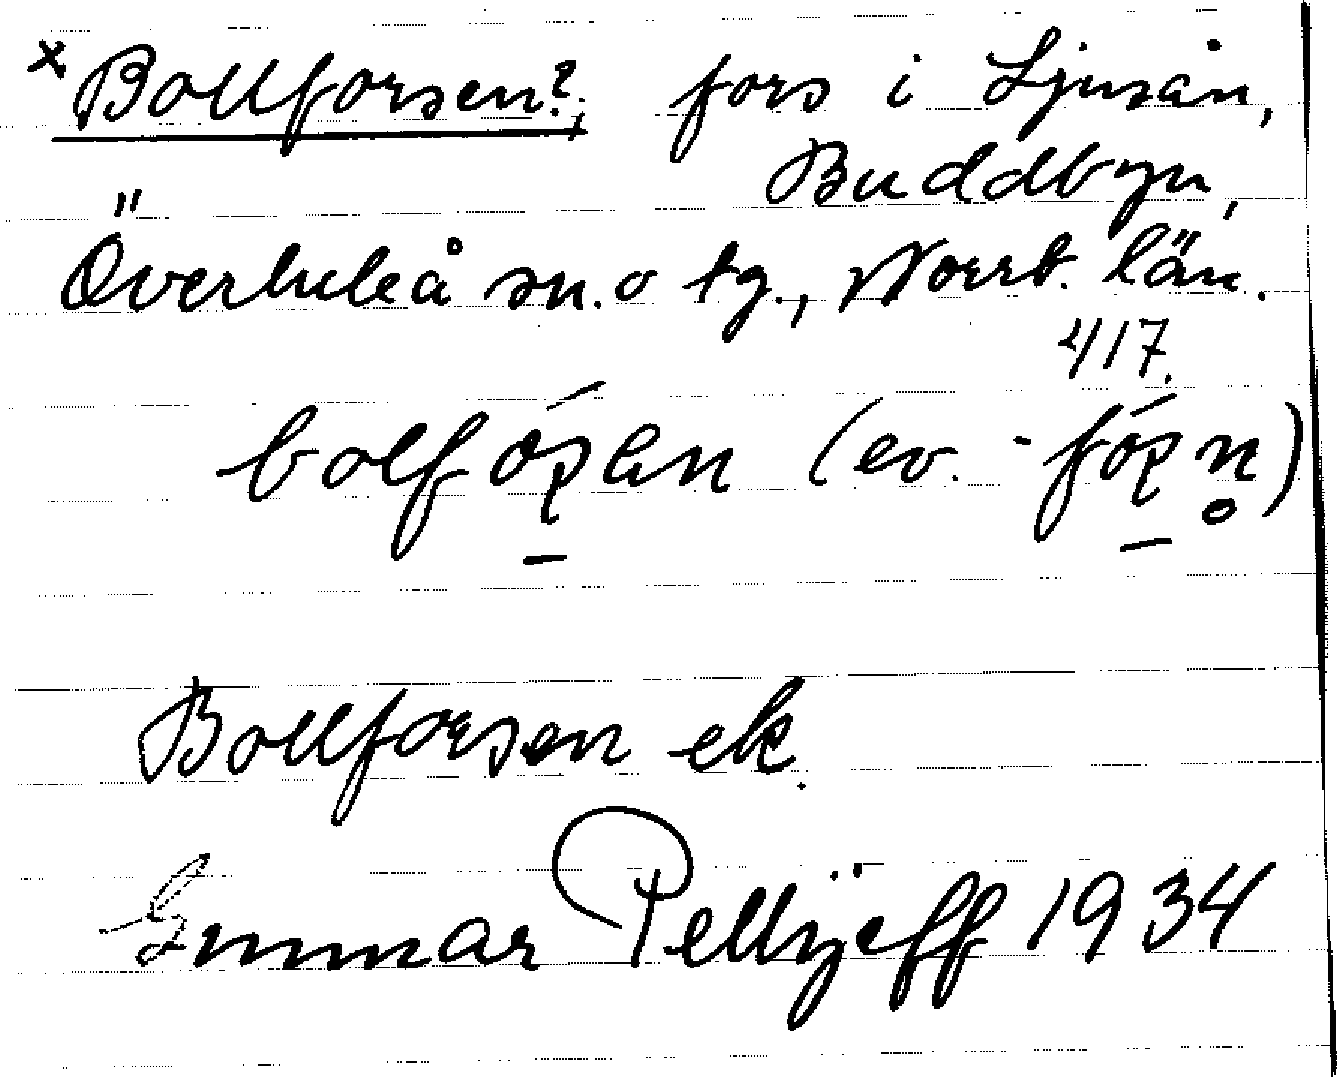 x Bollforsen?, fors i Ljusån,
Buddbyn,
Överluleå sn. o tg., Norrb. län.
417.
bolfósan (ev. -fósn̥)
Bollforsen ek.
Gunnar Pellijeff 1934